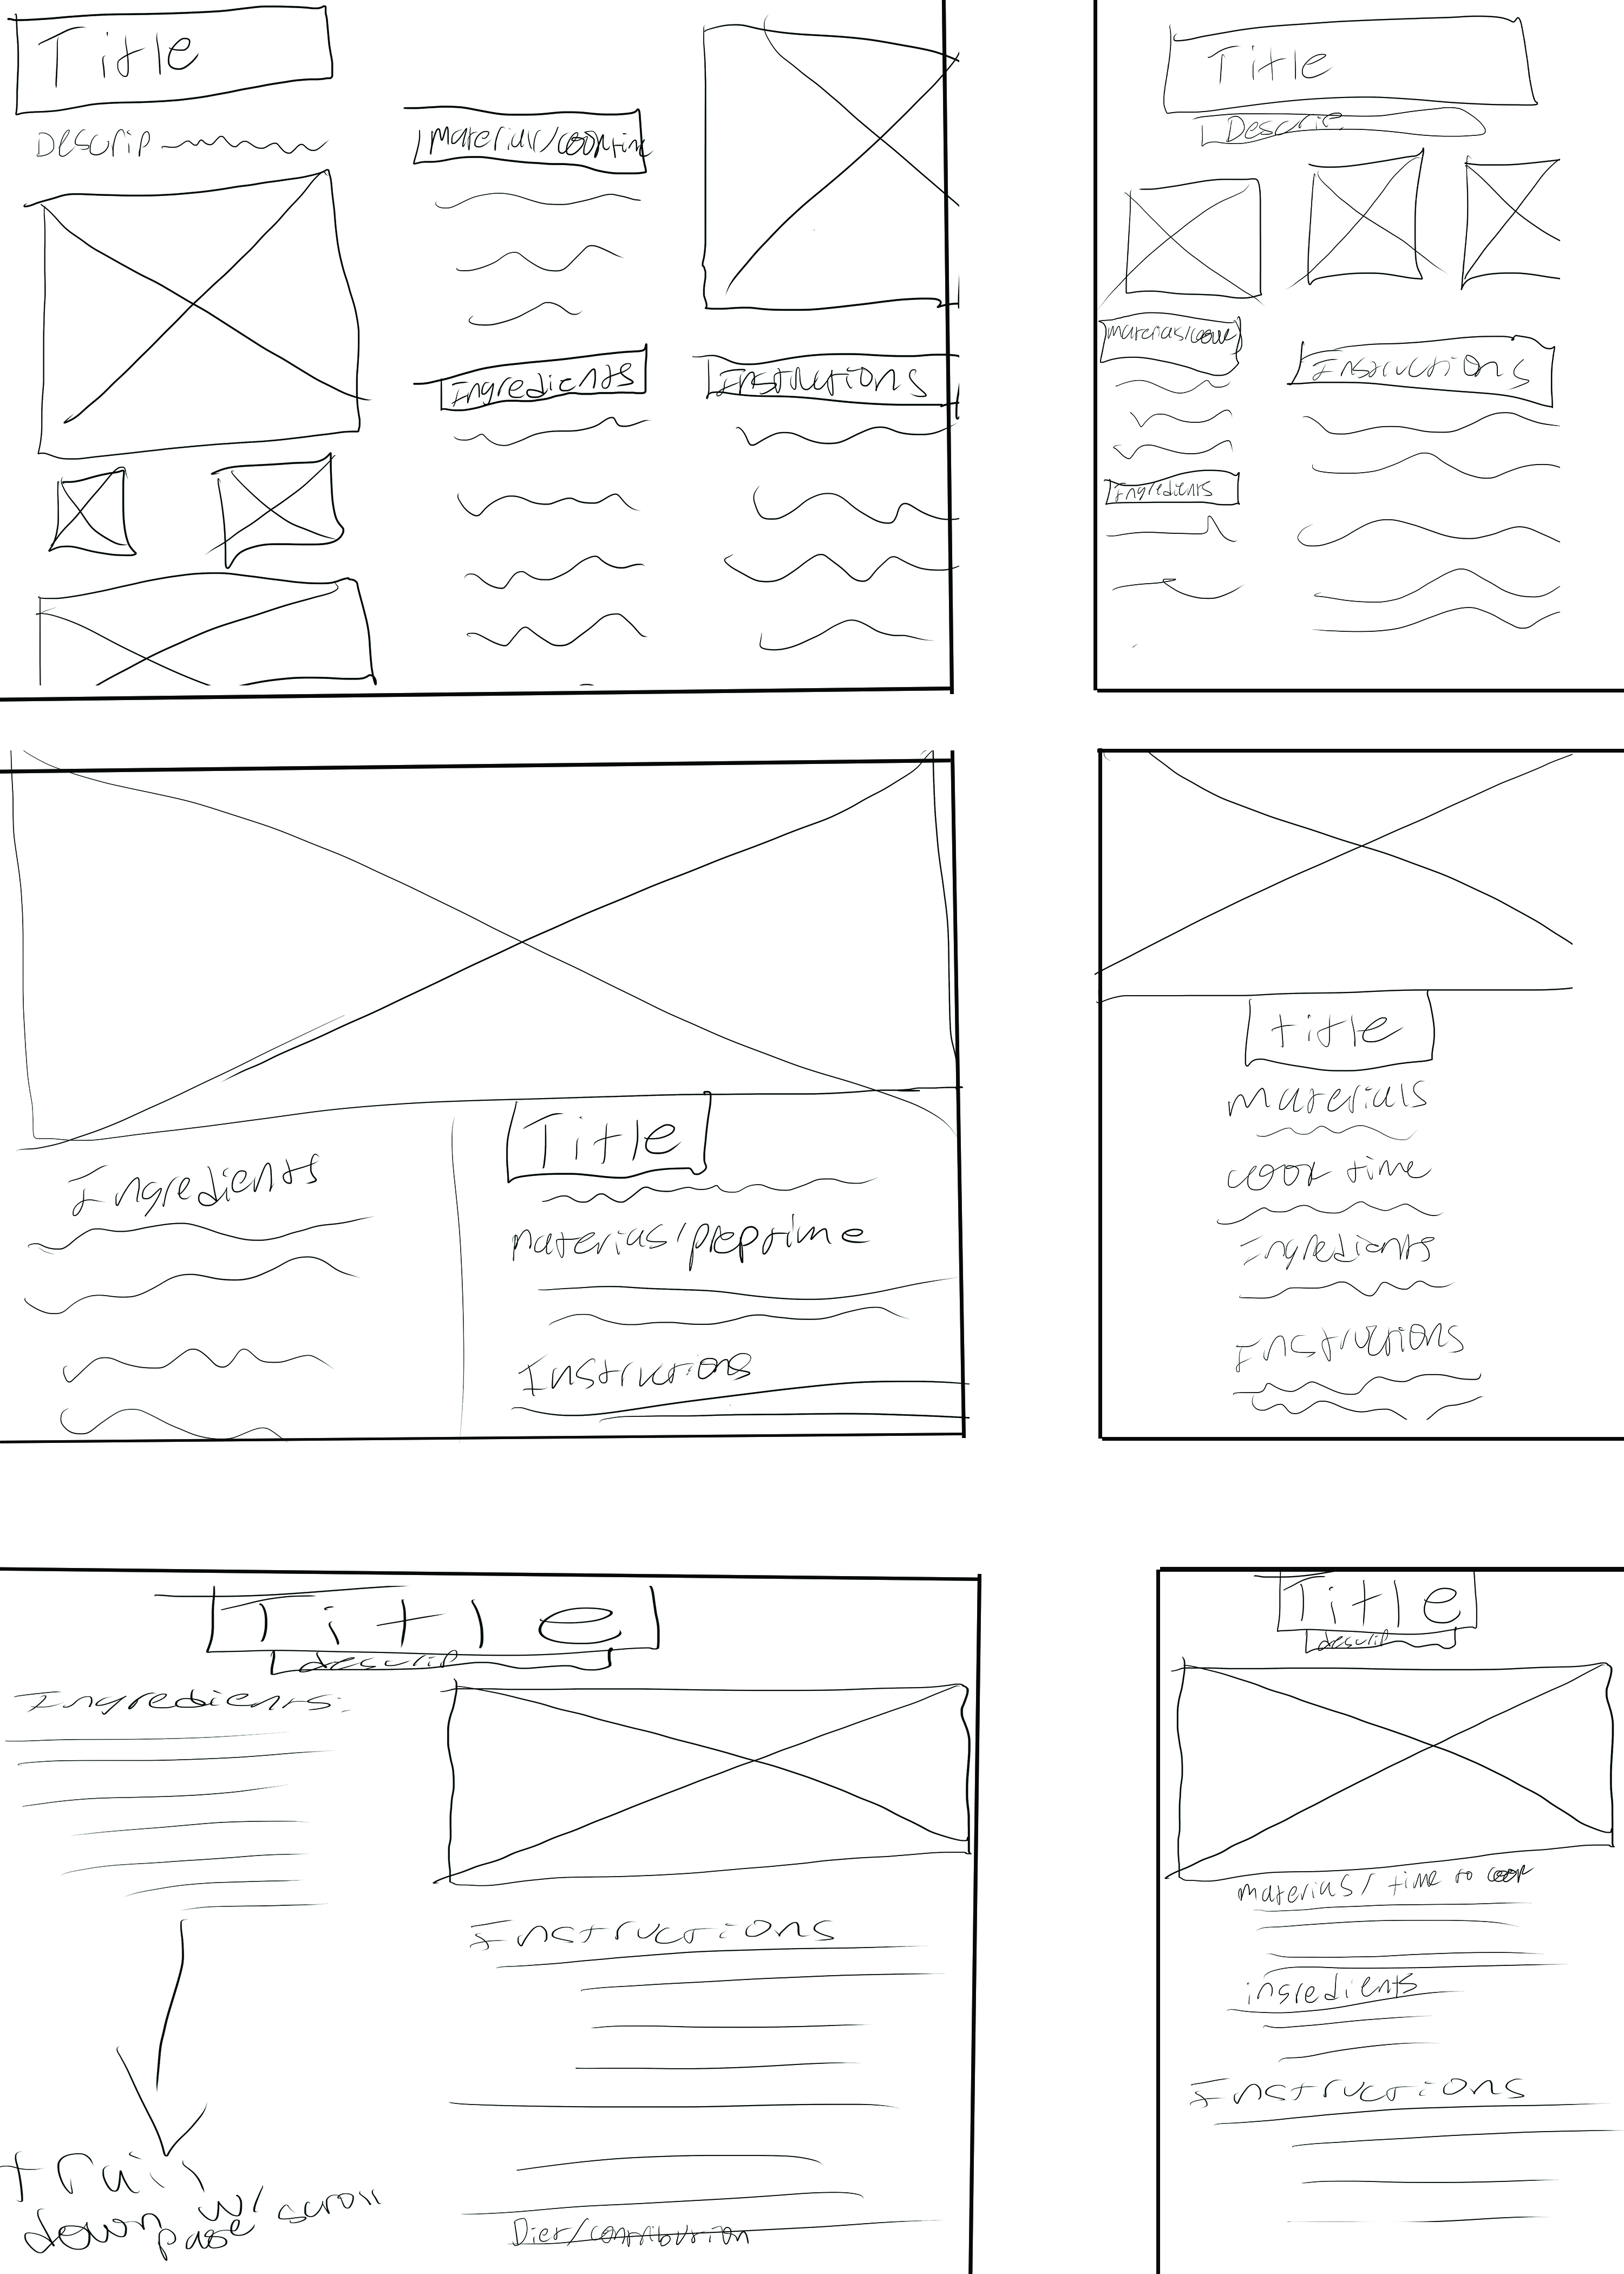 Title
Descrip
Material/cooktime
Ingredients
Instructions
Title
Descrip
Materials/cook
Instructions
Ingredients
Title
Ingredients
materials/preptime
Instructions
title
materials
cook time
Ingredients
Instructions
Title
descrip
Ingredients:
Instructions
trail
down w/
page scroll
Diet/contribution
Title
descrip
materials/ time to cook
ingredients
Instructions